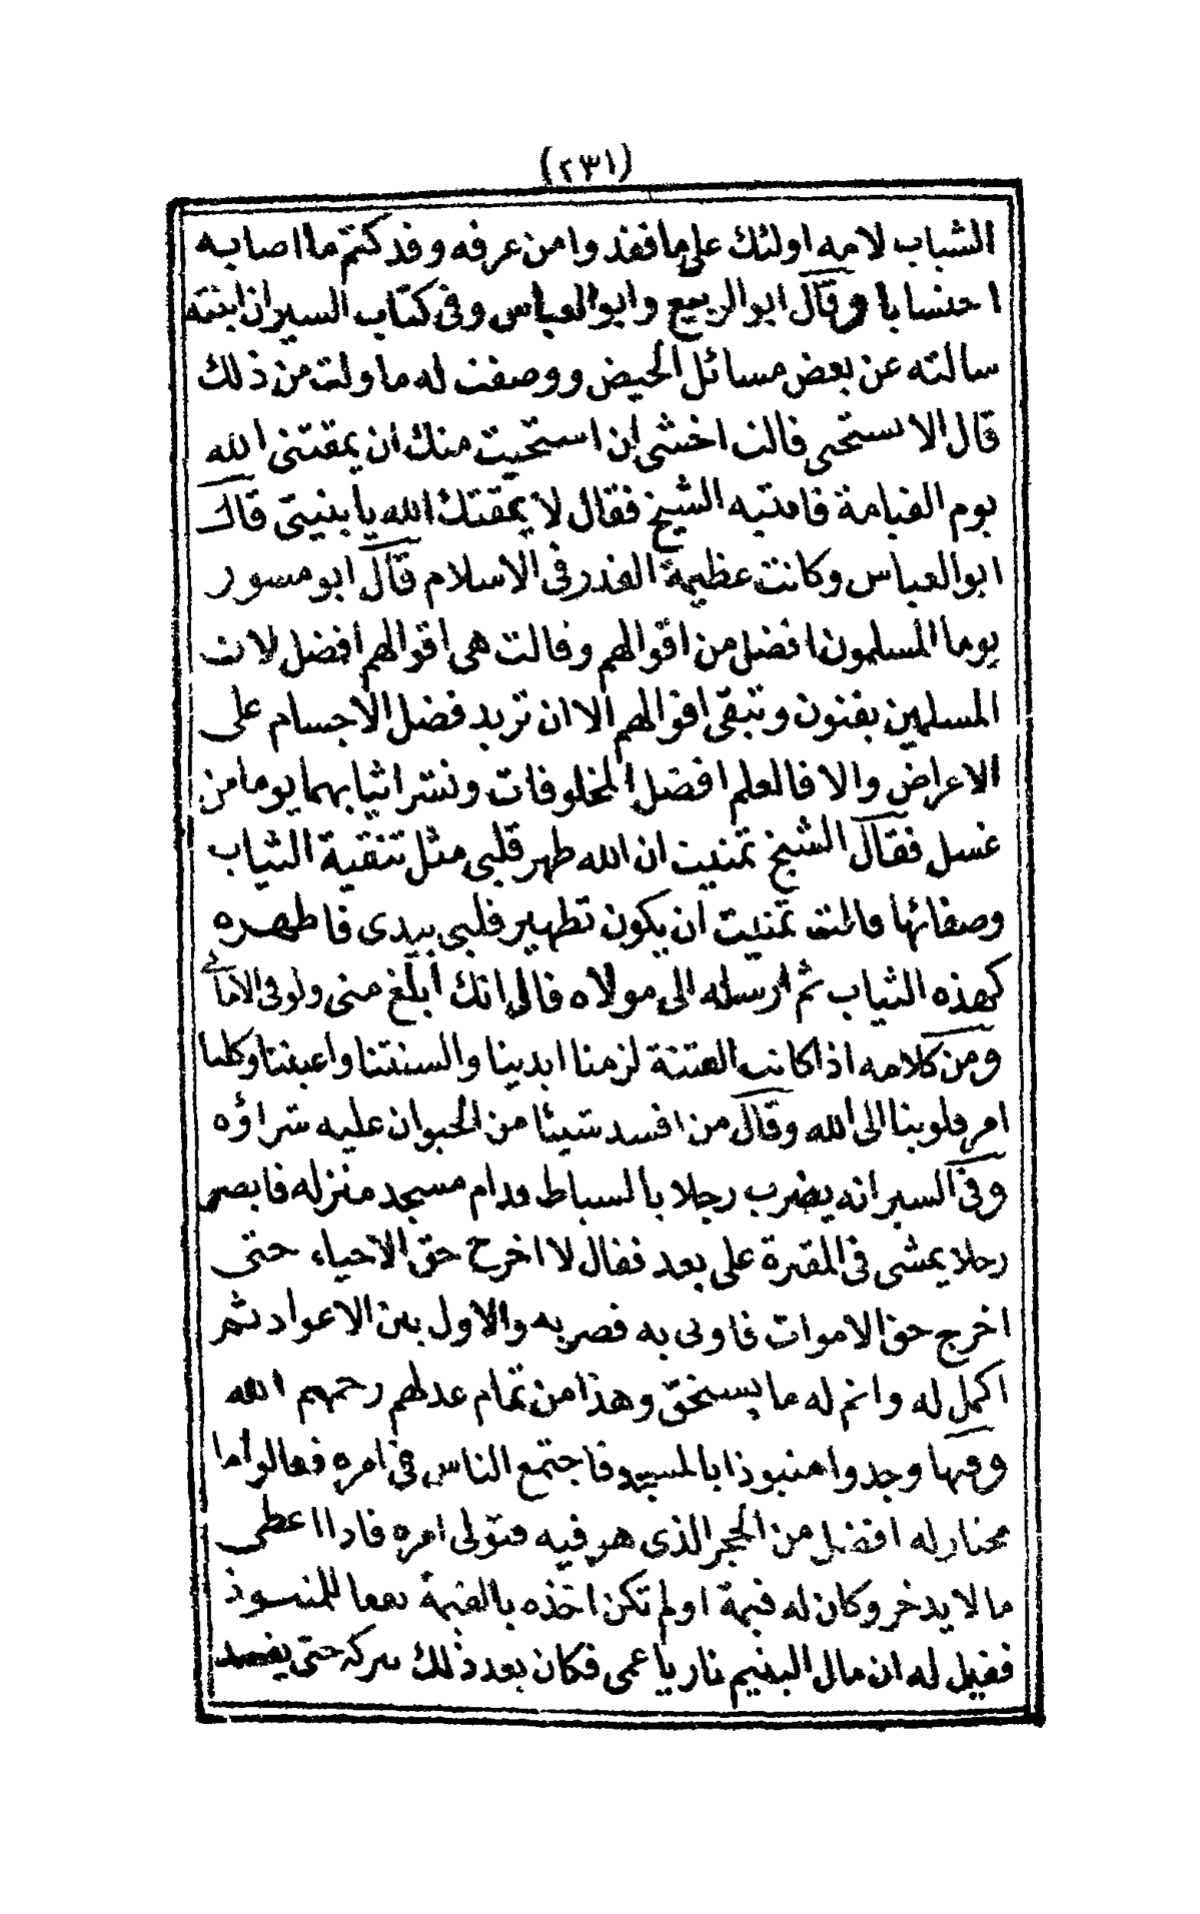 (٢٣١)
الشباب لامه اولئك على ما فقدوا من عرفه وقد كتم ما اصابه
احتسابا وقال ابو الربيع وابو العباس وفى كتاب السير ان ابنته
سالته عن بعض مسائل الحيض ووصفت له ما ولت من ذلك
قال الا تستحى قالت اخشى ان استحيت منك ان يمقتنى الله
يوم القيامة فادنيه الشيخ فقال لا يمقتك الله يا بنيتى قال
ابو العباس وكانت عظيمة القدر فى الاسلام قال ابو مسور
يوما المسلمون افضل من اقوالهم وقالت هى اقوالهم افضل لان
المسلمين يفنون وتبقى اقوالهم الا ان تريد فضل الاجسام على
الاعراض والا فالعلم افضل المخلوقات ونشر اثيابهما يوما من
غسل فقال الشيخ تمنيت ان الله طهر قلبى مثل تنقية الثياب
وصفائها قالت تمنيت ان يكون تطهير قلبى بيدى فاطهره
كهذه الثياب ثم ارسله الى مولاه قال انك ابلغ منى ولو فى الامانى
ومن كلامه اذا كانت الفتنة لزمنا ايدينا والسنتنا واعيننا وكلنا
امر قلوبنا الى الله وقال من افسد شيئا من الحيوان عليه شراؤه
وفى السير انه يضرب رجلا بالسباط قدام مسجد منزله فابصر
رجلا يمشى فى المقبرة على بعد فقال لا اخرج حق الاحياء حتى
اخرج حق الاموات فاوتى به فضربه والاول بين الاعواد ثم
اكمل له واتم له ما يستحق وهذا من تمام عدلهم رحمهم الله
وفيها وجدوا منبوذا بالمسجد فاجتمع الناس فى امره فقالوا اما
مختار له افضل من الحجر الذى هو فيه فتولى امره فاذا اعطى
ما لا يدخر وكان له قيمة اولم تكن اخذه بالقيمة نفعا للمنبوذ
فقيل له ان مال اليتيم نار يا عمى فكان بعد ذلك يتركه حتى يفسد